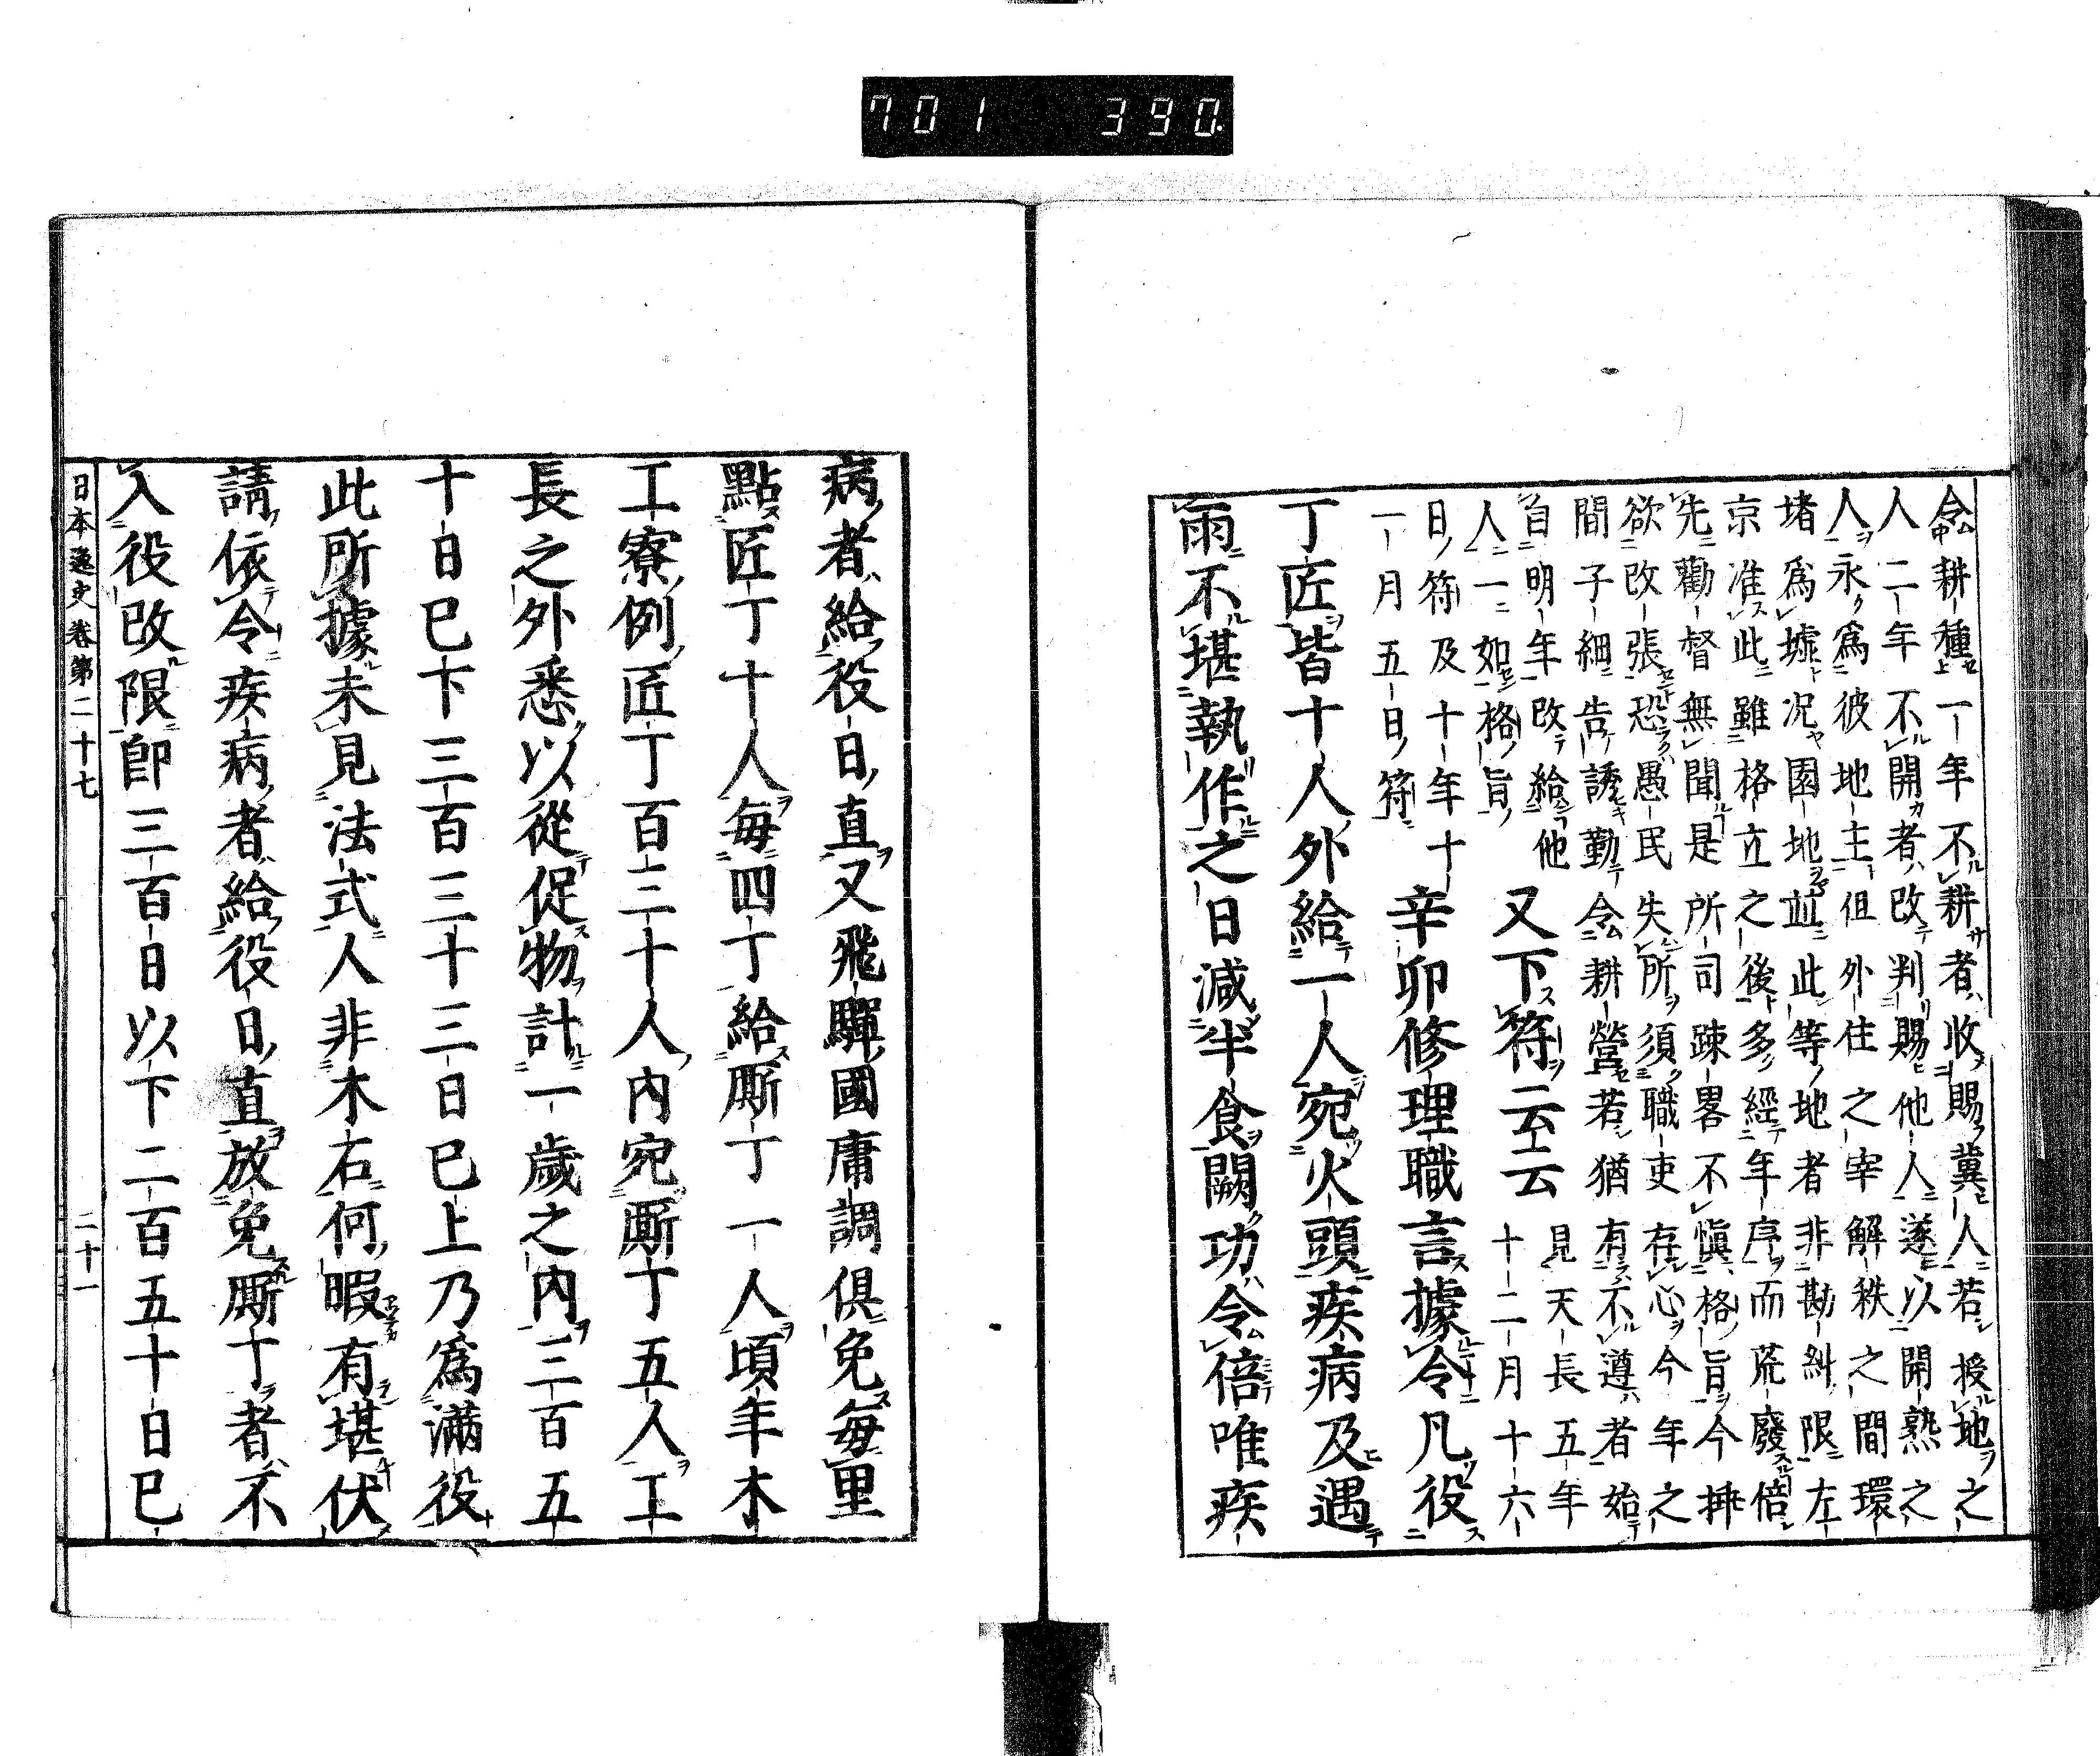 701 390
令耕種一年不耕者收賜冀人若授地之
人二年不開者改判賜他人遂以開熟之
人永爲彼地主但外住之宰解秩之間環
堵爲墟況園地並此等地者非勘糾限左
京准此雖格立之後多經年序而荒廢倍
先勸督無聞是所司疎畧不愼格旨今拼
欲改張恐愚民失所須職吏存心今年之
間子細告誘勤令耕營若猶有不遵者始
自明年改給他
人一如格旨
又下符云云
見天長五年
十二月十六
日符及十年十
一月五日符
辛卯修理職言據令凡役
丁匠皆十人外給一人宛火頭疾病及遇
雨不堪執作之日減半食闕功令倍唯疾
病者給役日直又飛驒國庸調俱免每里
點匠丁十人每四丁給厮丁一人頃年木
工寮例匠丁百三十人內宛厮丁五人工
長之外悉以從促物計一歲之內三百五
十日已下三百三十三日已上乃爲滿役
此所據未見法式人非木石何暇有堪伏
請依令疾病者給役日直放免厮丁者不
入役改限卽三百日以下二百五十日已
日本逸史卷第二十七
二十一